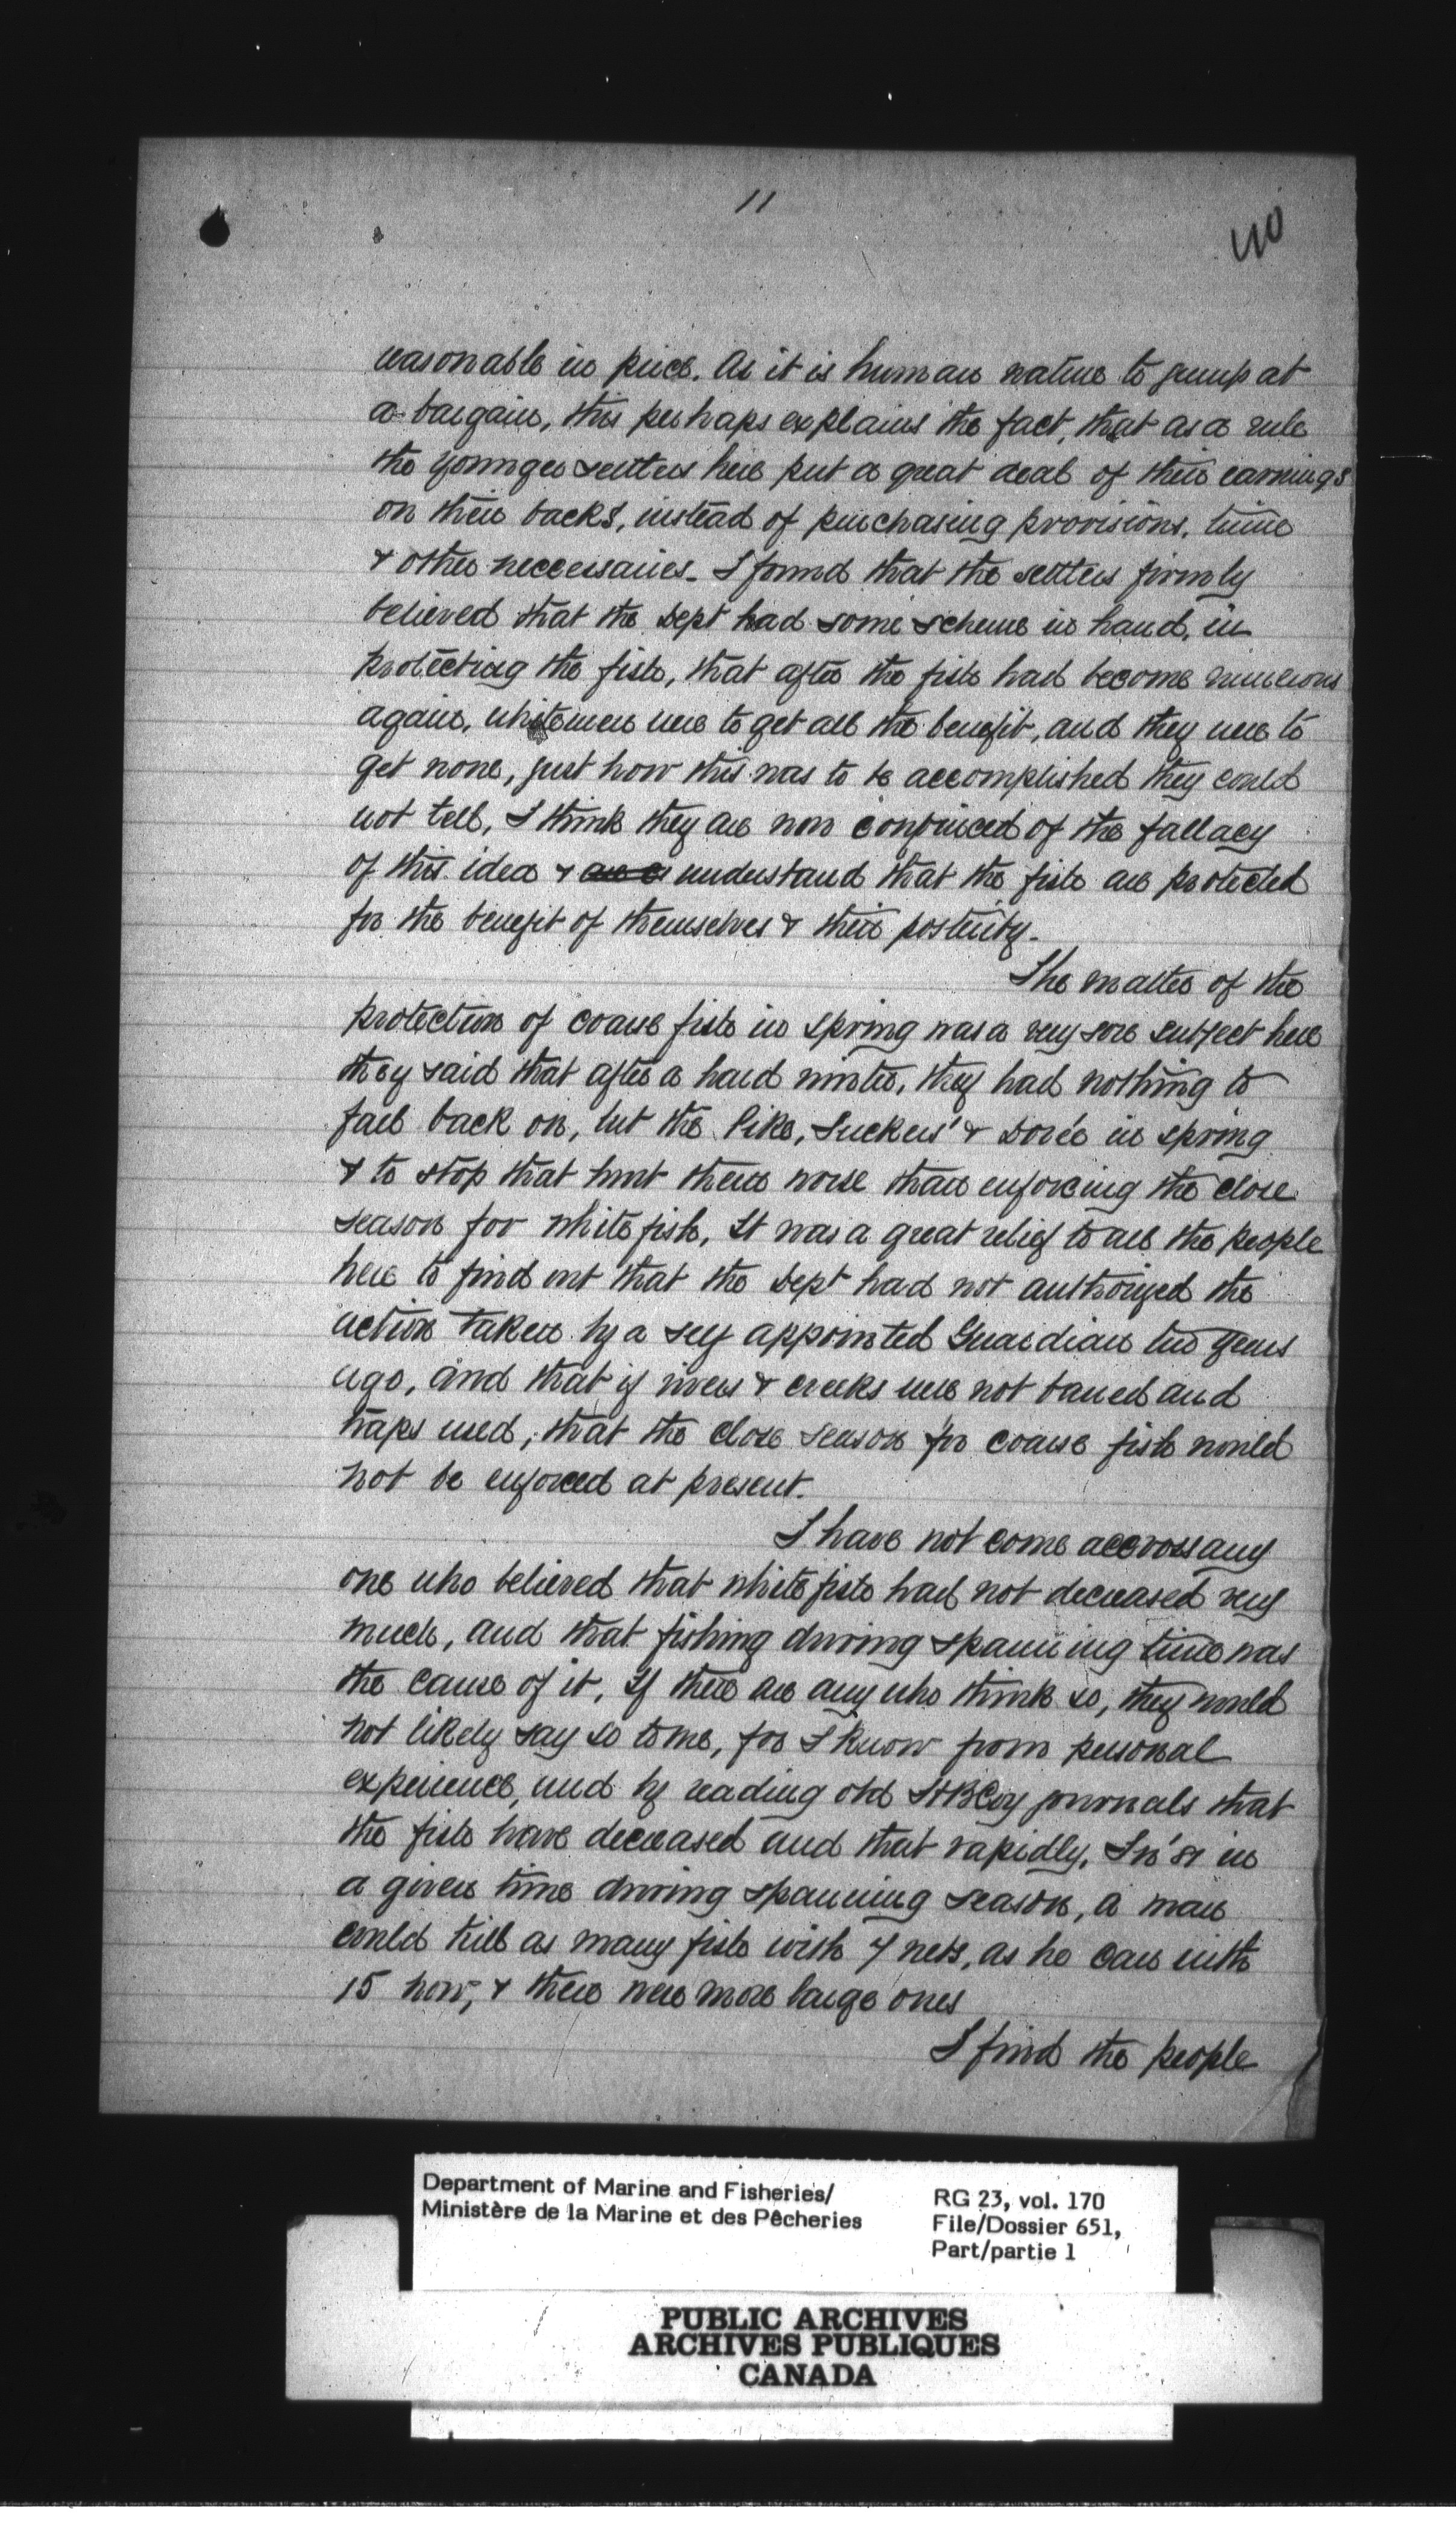 11
110
reasonable in price. As it is human nature to jump at
a bargain, this perhaps explains the fact, that as a rule
the younger settlers here put a great deal of their earnings
on their backs, instead of purchasing provisions, twine
& other neccessaries. I found that the settlers firmly
believed that the Dept had some scheme in hand, in
protecting the fish, that after the fish had become numerous
again, whitemen were to get all the benefit, and they were to
get none, just how this was to be accomplished they could
not tell, I think they are now convinced of the fallacy
of this idea & understand that the fish are protected
for the benefit of themselves & their posterity.
The matter of the
protection of coarse fish in spring was a very sore subject here
they said that after a hard winter, they had nothing to
fall back on, but the Pike, Suckers & Dorée in spring
& to stop that hurt them worse than enforcing the close
season for whitefish. It was a great relief to all the people
here to find out that the Dept had not authorized the
action taken by a self appointed Guardian two years
ago, and that if rivers & creeks were not barred and
traps used, that the close season for coarse fish would
not be enforced at present.
I have not come accross any
one who believed that whitefish had not decreased very
much, and that fishing during spawning time was
the cause of it. If there are any who think so, they would
not likely say so to me, for I know from personal
experience, and by reading old HBCoy journals that
the fish have decreased and that rapidly. In '81 in
a given time during spawning season, a man
could kill as many fish with 7 nets, as he can with
15 now, & there were more large ones
I find the people
Department of Marine and Fisheries/
Ministère de la Marine et des Pêcheries
RG 23, vol. 170
File/Dossier 651,
Part/partie 1
PUBLIC ARCHIVES
ARCHIVES PUBLIQUES
CANADA